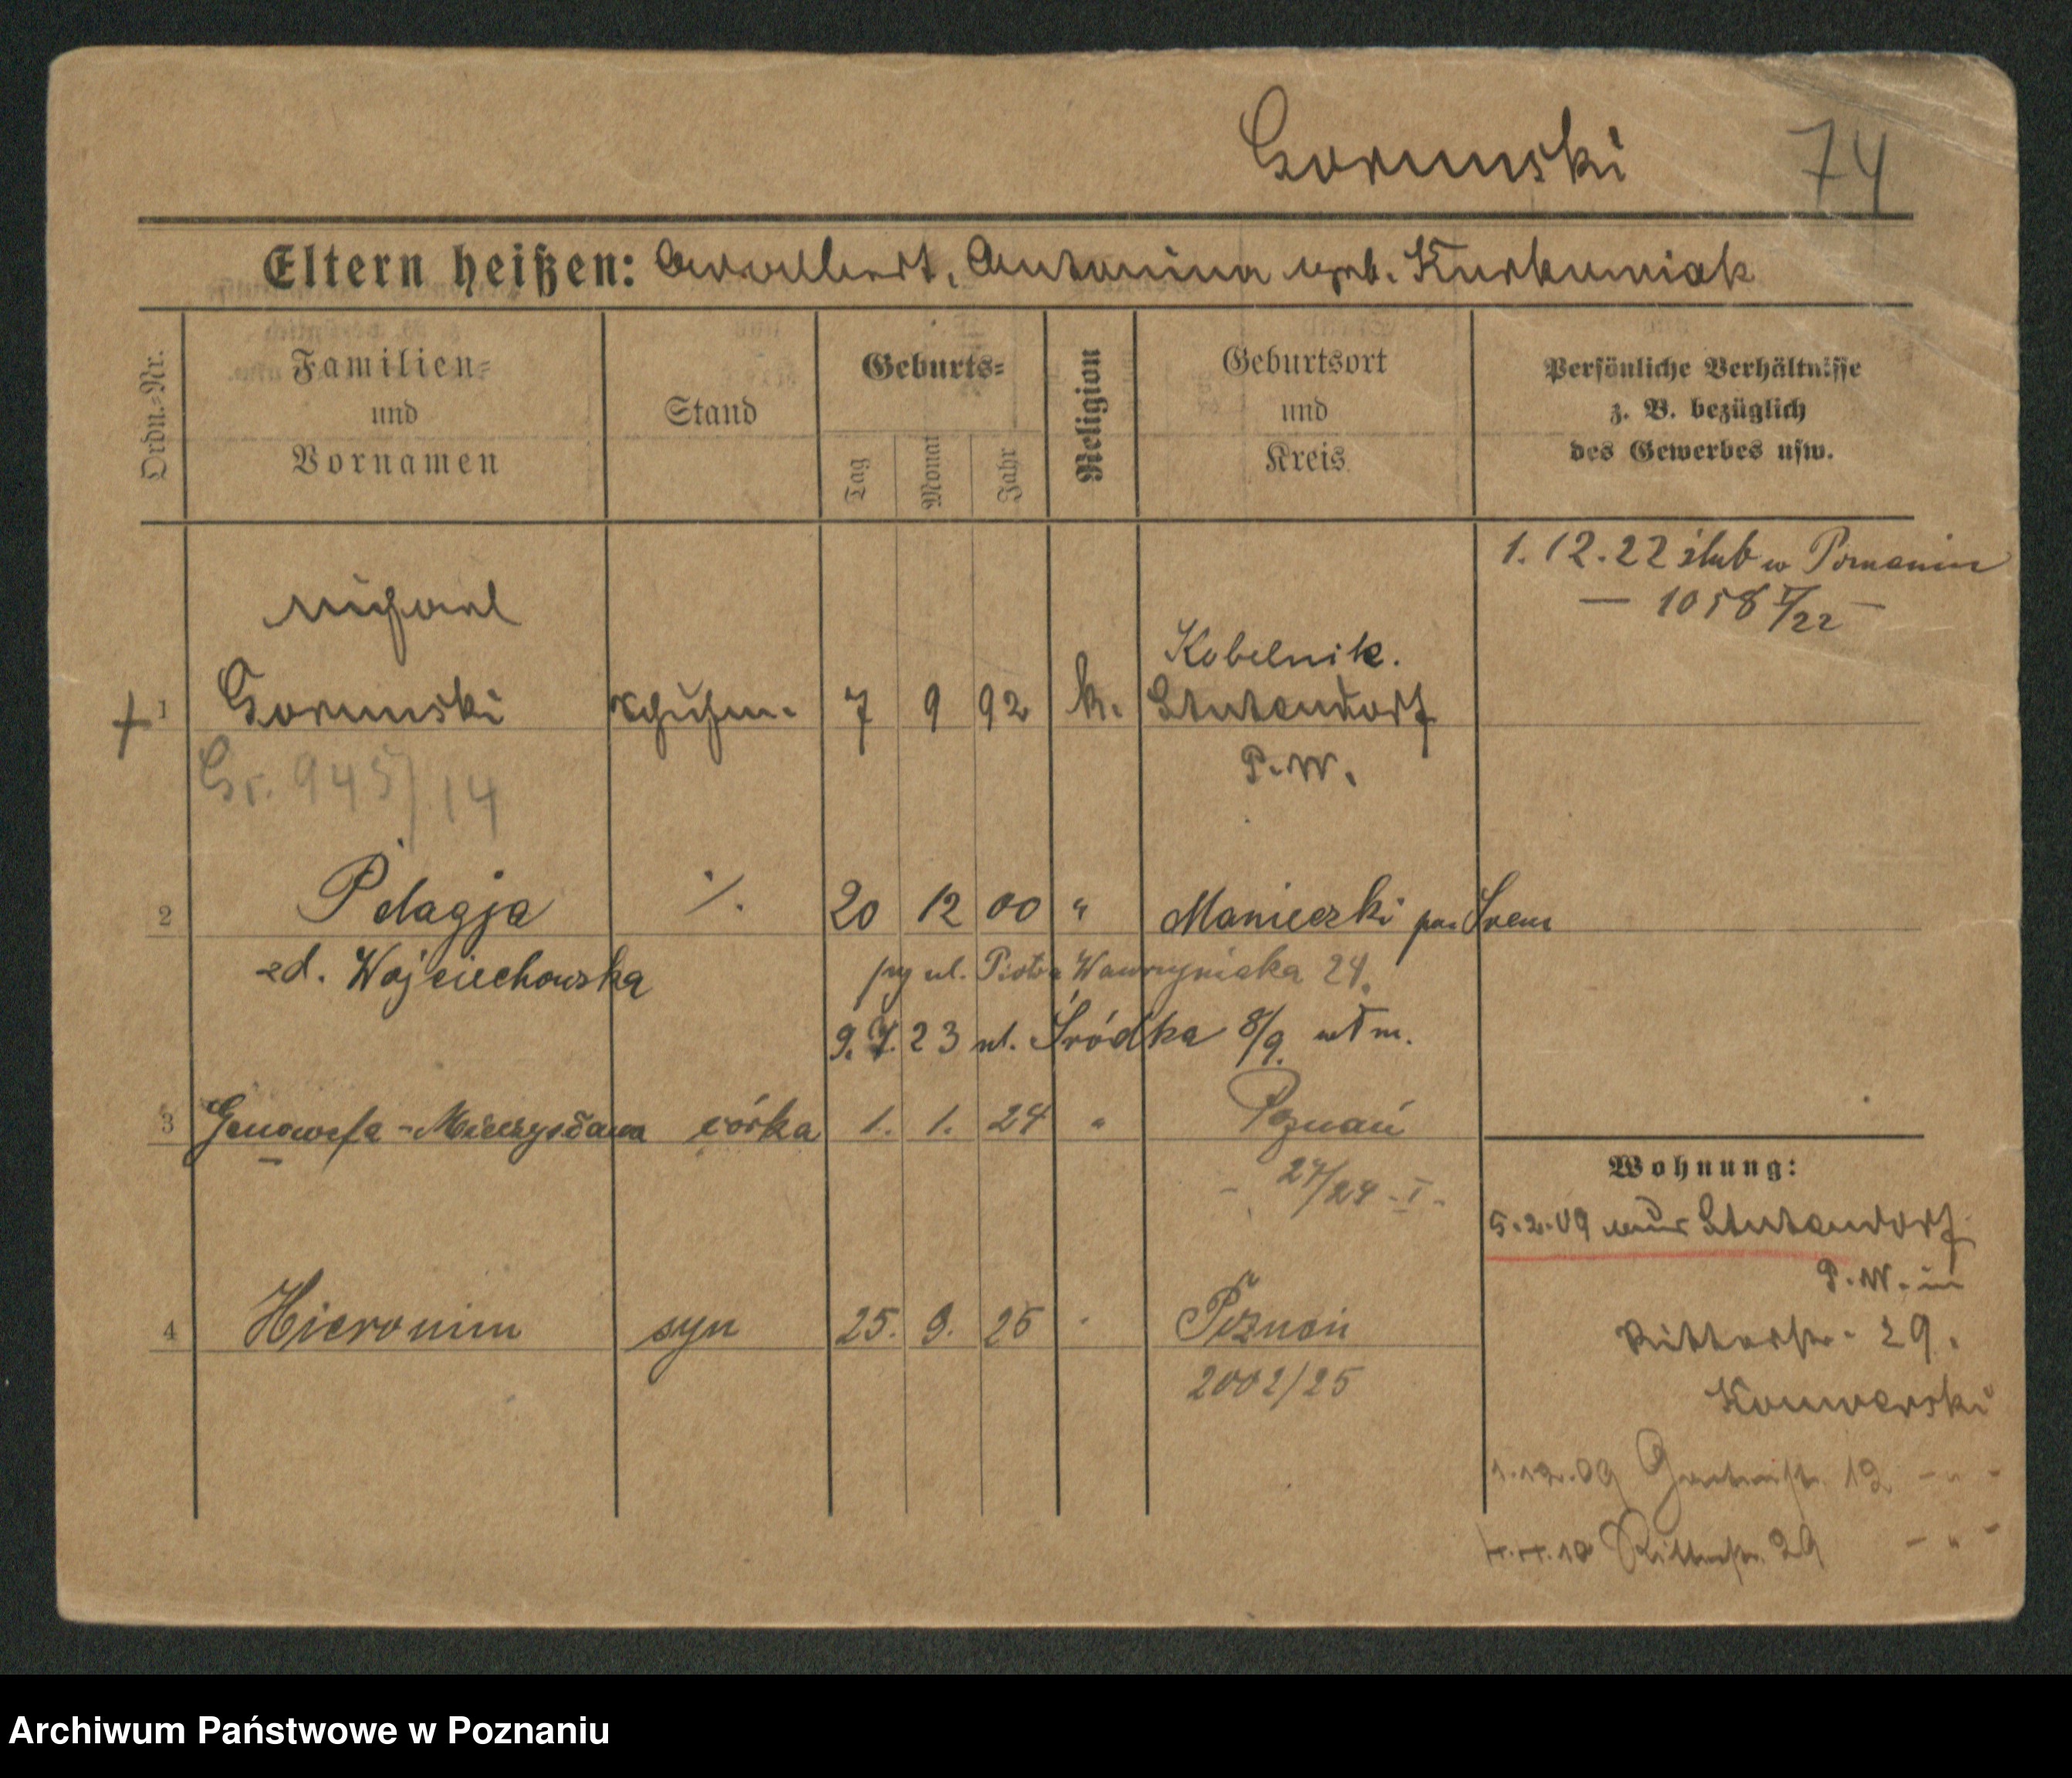 Gorunski 74
Eltern heißen: Adalbert, Antonina geb. Kurkuniak
Ordn.=Nr.
Familien=
und
Vornamen
Stand
Geburts=
Tag
Monat
Jahr
Religion
Geburtsort
und
Kreis
Persönliche Verhältnisse
z. B. bezüglich
des Gewerbes usw.
1. 12. 22 ślub w Poznaniu
— 1058 I/22 —
Michael
Kobelnik.
1 Gorunski 7 9 92 k. Stutendorf
P. W.
Gr. 945/14
2 Pelagja ·/. 20 12 00 " Manieczki pow Śrem
zd. Wojciechowska
przy ul. Piotra Wawrzyniaka 24.
9. 7. 23 ul. Śródka 8/9. wł m.
3 Genowefa - Mieczysława córka 1. 1. 24 " Poznań
- 27/24 - I -
Wohnung:
5. 2. 09 aus Stutendorf
P. W. in
4 Hieronim syn 25. 9. 25 " Poznań
2002/25
Ritterstr. 29.
Konwerski
1. 12. 09 12 - " -
10 Ritterstr. 29 - " -